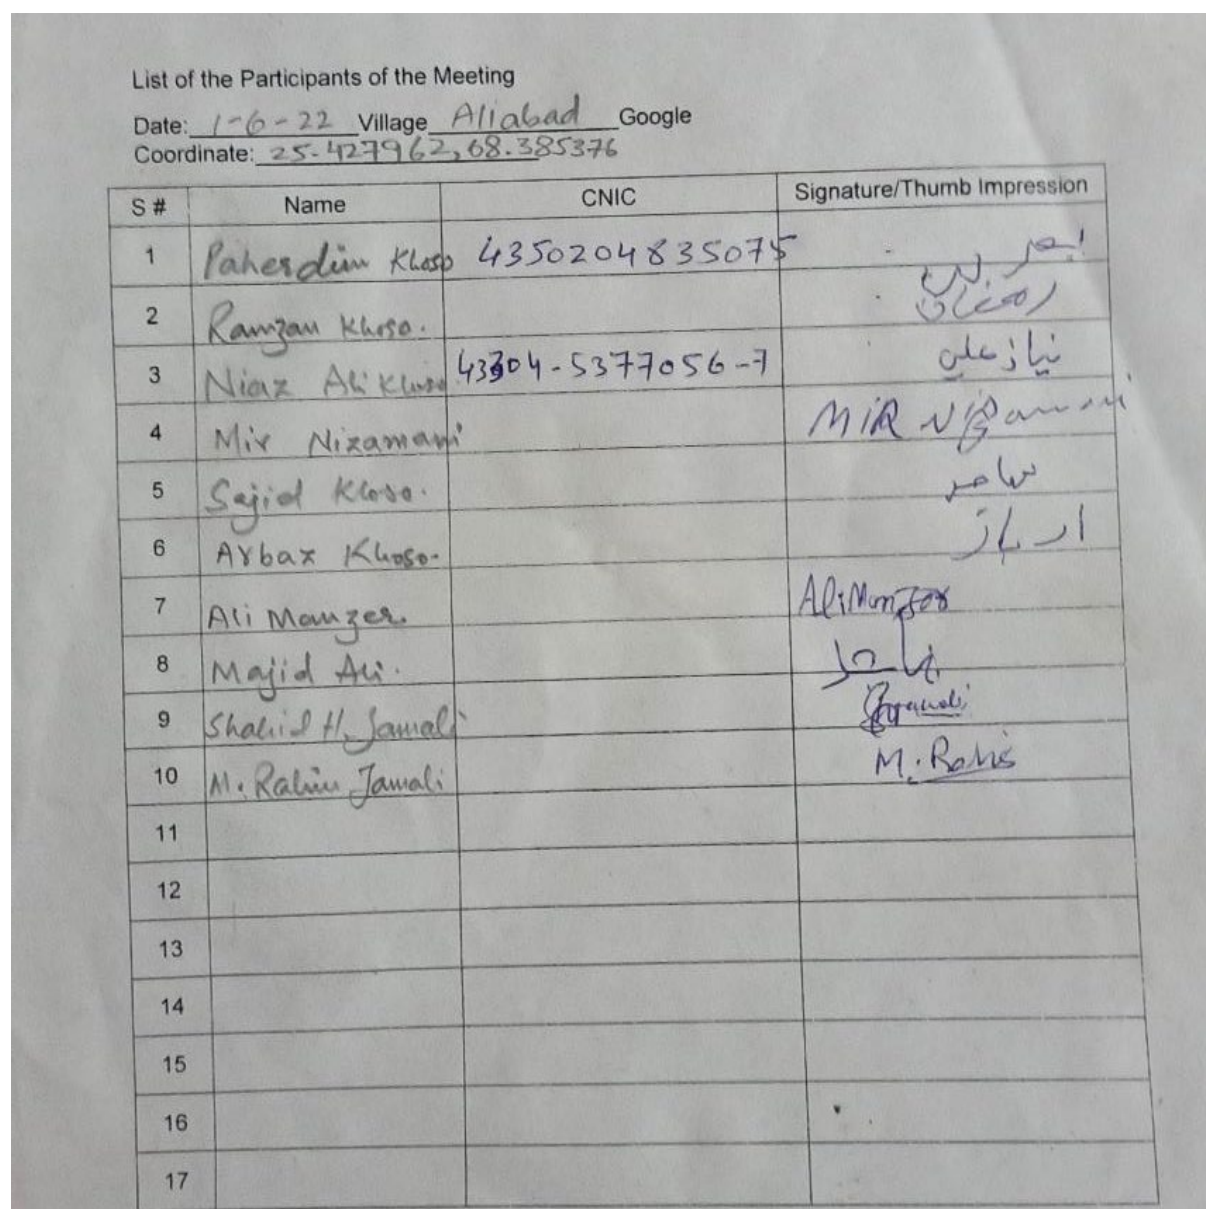 List of the Participants of the Meeting
Date: 1-6-22 Village Aliabad Google
Coordinate: 25.427962, 68.385376
S # Name CNIC Signature/Thumb Impression
1 Paherdin Khoso 4350204835075
2 Ramzan Khoso. رمضان
3 Niaz Ali Khoso 43304-5377056-7 نياز علي
4 Mir Nizamani MIR Nizamani
5 Sajid Khoso. ساجد
6 Arbaz Khoso. ارباز
7 Ali Manzer. Ali Manzor
8 Majid Ali. ماجد
9 Shahid H. Jamali
10 M. Rahim Jamali M. Rahis
11
12
13
14
15
16
17